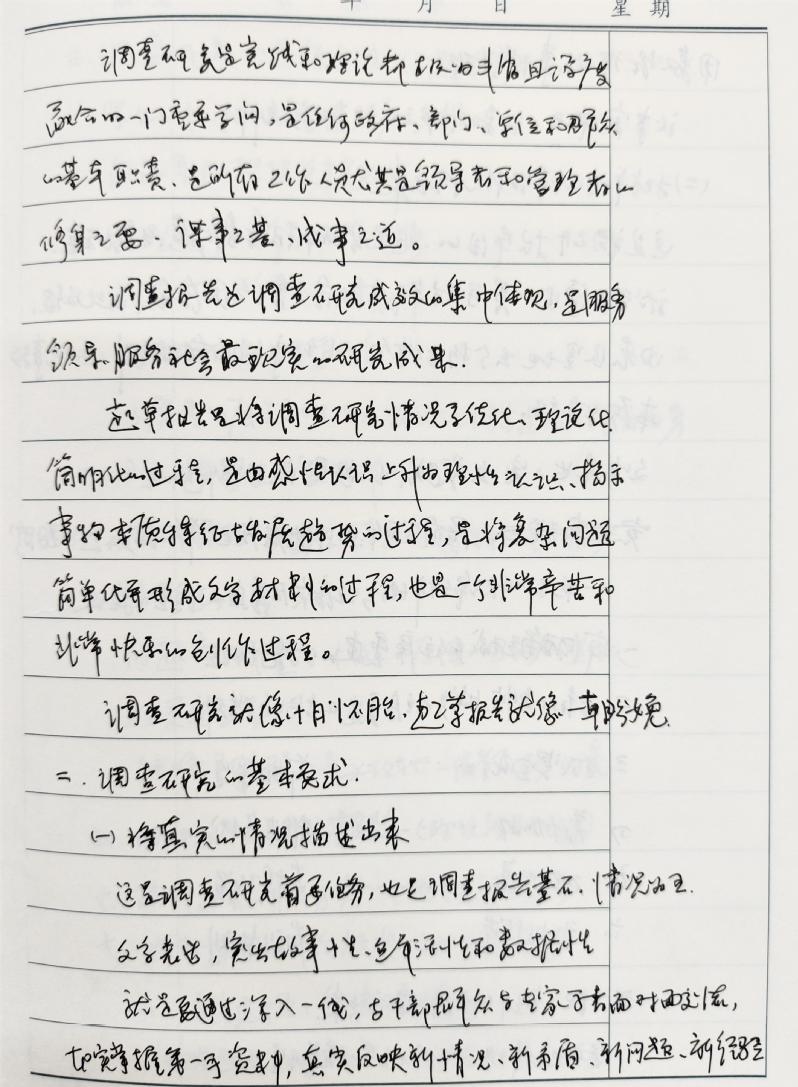 年 月 日 星期
调查研究是实践和理论都极为丰富且深度
融合的一门重要学问,是任何政府、部门、单位和群众
的基本职责、是所有工作人员尤其是领导者和管理者的
修身之要、谋事之基、成事之道。
调查报告是调查研究成效的集中体现,是服务
领导、服务社会最现实的研究成果.
起草报告是将调查研究情况系统化、理论化、
简明化的过程,是由感性认识上升为理性认识、揭示
事物本质特征与发展趋势的过程,是将复杂问题
简单化并形成文字材料的过程,也是一个非常辛苦和
非常快乐的创作过程。
调查研究就像十月怀胎、起草报告就像一朝分娩.
二.调查研究的基本要求.
(一)将真实的情况描述出来
这是调查研究首要任务,也是调查报告基石.情况为主.
文字表述,突出故事性、鲜活性和数据性
就是要通过深入一线,与干部群众与专家学者面对面交流,
切实掌握第一手资料,真实反映新情况、新矛盾、新问题、新经验